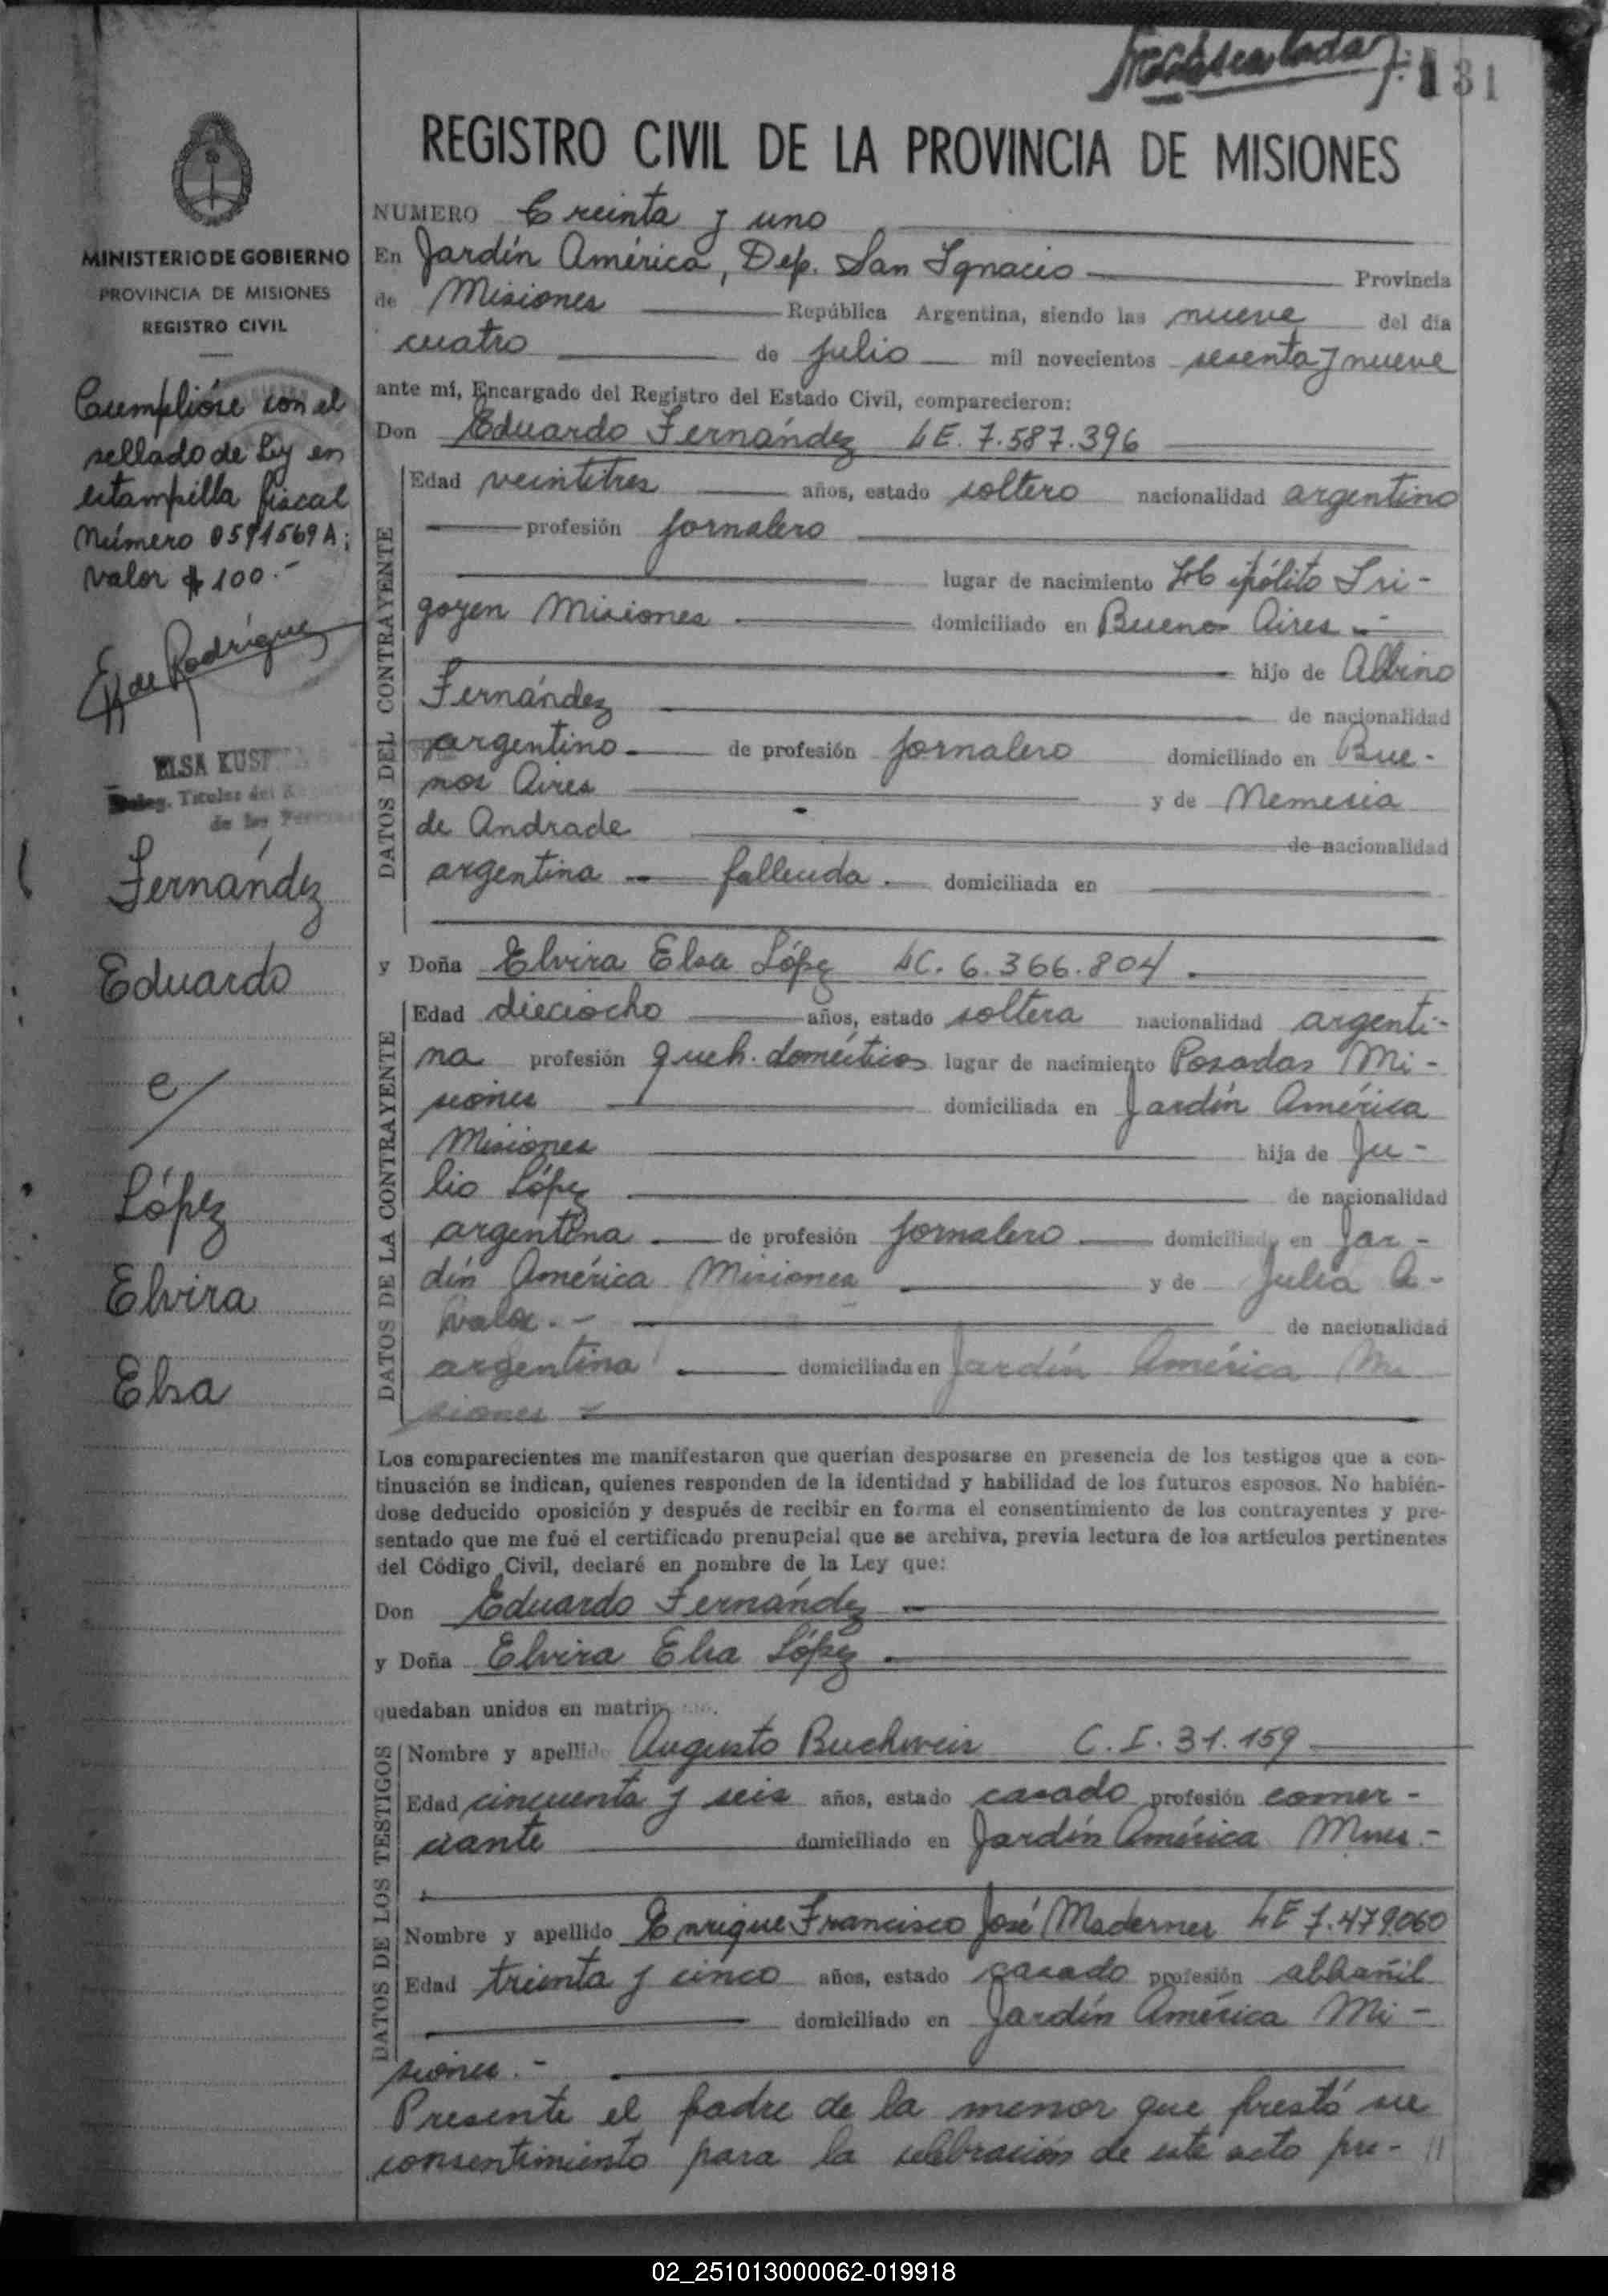 131
REGISTRO CIVIL DE LA PROVINCIA DE MISIONES
MINISTERIO DE GOBIERNO
PROVINCIA DE MISIONES
REGISTRO CIVIL
Cumplióse con el
sellado de Ley en
estampilla fiscal
Número 0591569A;
valor $ 100.-
de Rodríguez
ELSA KUSP
Titular del
de las
Fernández
Eduardo
e/
López
Elvira
Elsa
NUMERO Treinta y uno
En Jardín América, Dep. San Ignacio Provincia
de Misiones República Argentina, siendo las nueve del día
cuatro de julio mil novecientos sesenta y nueve
ante mí, Encargado del Registro del Estado Civil, comparecieron:
Don Eduardo Fernández LE. 7.587.396
DATOS DEL CONTRAYENTE
Edad veintitres años, estado soltero nacionalidad argentino
profesión jornalero
lugar de nacimiento Hipólito Iri-
goyen Misiones domiciliado en Buenos Aires.-
hijo de Albino
Fernández de nacionalidad
argentino de profesión jornalero domiciliado en Bue-
nos Aires y de Nemesia
de Andrade de nacionalidad
argentina fallecida. domiciliada en
y Doña Elvira Elsa López LC. 6.366.804.
DATOS DE LA CONTRAYENTE
Edad dieciocho años, estado soltera nacionalidad argenti-
na profesión queh. domésticos lugar de nacimiento Posadas Mi-
siones domiciliada en Jardín América
Misiones hija de Ju-
lio López de nacionalidad
argentina de profesión jornalero domiciliado en Jar-
dín América Misiones y de Julia A-
valos.- de nacionalidad
argentina domiciliada en Jardín América Mi
siones
Los comparecientes me manifestaron que querían desposarse en presencia de los testigos que a con-
tinuación se indican, quienes responden de la identidad y habilidad de los futuros esposos. No habién-
dose deducido oposición y después de recibir en forma el consentimiento de los contrayentes y pre-
sentado que me fué el certificado prenupcial que se archiva, previa lectura de los artículos pertinentes
del Código Civil, declaré en nombre de la Ley que:
Don Eduardo Fernández
y Doña Elvira Elsa López.
quedaban unidos en matrimonio.
DATOS DE LOS TESTIGOS
Nombre y apellido Augusto Buchweis C.I. 31.159
Edad cincuenta y seis años, estado casado profesión comer-
ciante domiciliado en Jardín América Mnes.-
Nombre y apellido Enrique Francisco José Maderner LE 7.479.060
Edad treinta y cinco años, estado casado profesión albañil
domiciliado en Jardín América Mi-
siones.-
Presente el padre de la menor que prestó su
consentimiento para la celebración de este acto pre- //
02_251013000062-019918